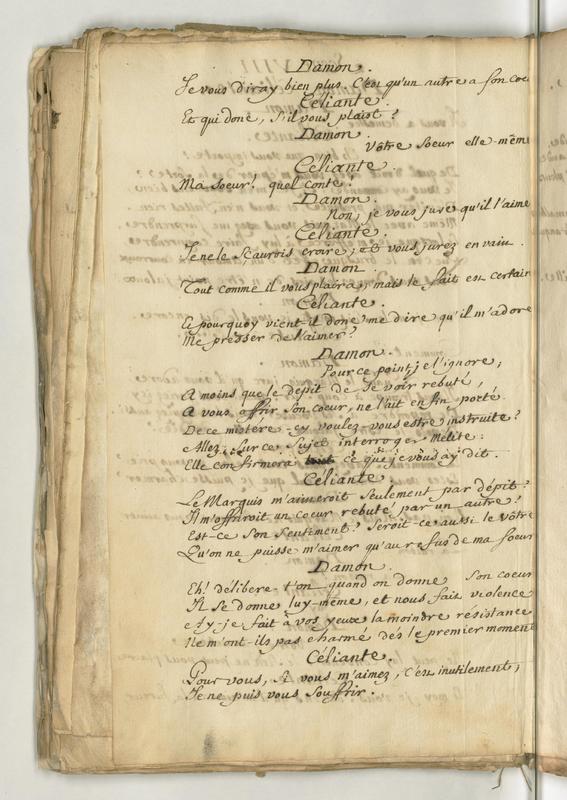 Damon.
Je vous diray bien plus. C'est qu'un autre a son
Céliante.
Et qui donc, s'il vous plaist?
Damon.
Votre Soeur elle-même
Céliante.
Ma soeur! quel conte!
Damon.
Non, je vous jure qu'il l'aime
Céliante.
Je ne le sçaurois croire; et vous jurez en vain.
Damon.
Tout comme il vous plaira, mais le fait est certain
Céliante.
Et pourquoy vient-il donc me dire qu'il m'adore
Me presser de l'aimer?
Damon.
Pour ce point, je l'ignore;
A moins que le depit de se voir rebuté,
A vous offrir son coeur, ne l'ait enfin porté.
De ce mistere-cy voulez vous estre instruite?
Allez, sur ce sujet interroger Melite:
Elle confirmera ce que je vous ay dit.
Céliante
Le Marquis m'aimeroit seulement par dépit?
Il m'offriroit un coeur rebuté par un autre?
Est-ce son sentiment? Seroit-ce aussi le vôtre
Qu'on ne puisse m'aimer qu'au refus de ma soeur
Damon.
Eh! delibere-t'on quand on donne son coeur
Il se donne luy-même, et nous fait violence
Ay-je fait à vos yeux la moindre resistance
Ne m'ont-ils pas charmé dès le premier moment
Céliante.
Pour vous, si vous m'aimez, c'est inutilement;
Je ne puis vous souffrir.